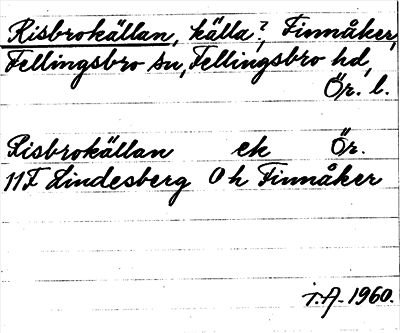 Risbrokällan, källa?, Finnåker,
Fellingsbro sn, Fellingsbro hd,
Ör. l.
Risbrokällan ek Ör.
11F Lindesberg 0h Finnåker
T.A. 1960.